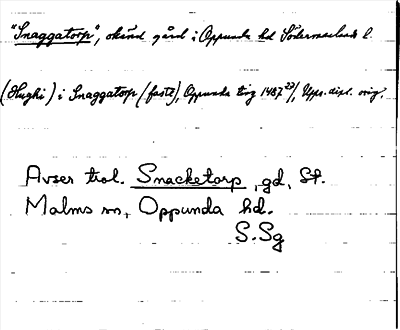 "Snaggatorp", okänd gård i Oppunda hd Södermanlands l.
(Hughi) i Snaggatorp (faste), Oppunda ting 1487 23/, Upps. dipl. orig.
Avser trol. Snacketorp, gd, St.
Malms sn, Oppunda hd.
S.Sg